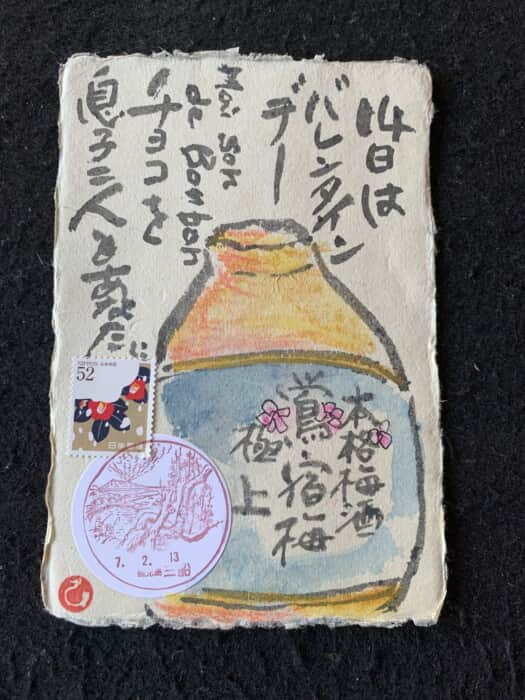 14日は
バレンタイン
デー
Mai son
de Bonbon
チョコを
息子二人と
本格梅酒
鶯宿梅
極上
NIPPON
52
日本郵便
7. 2. 13
二船